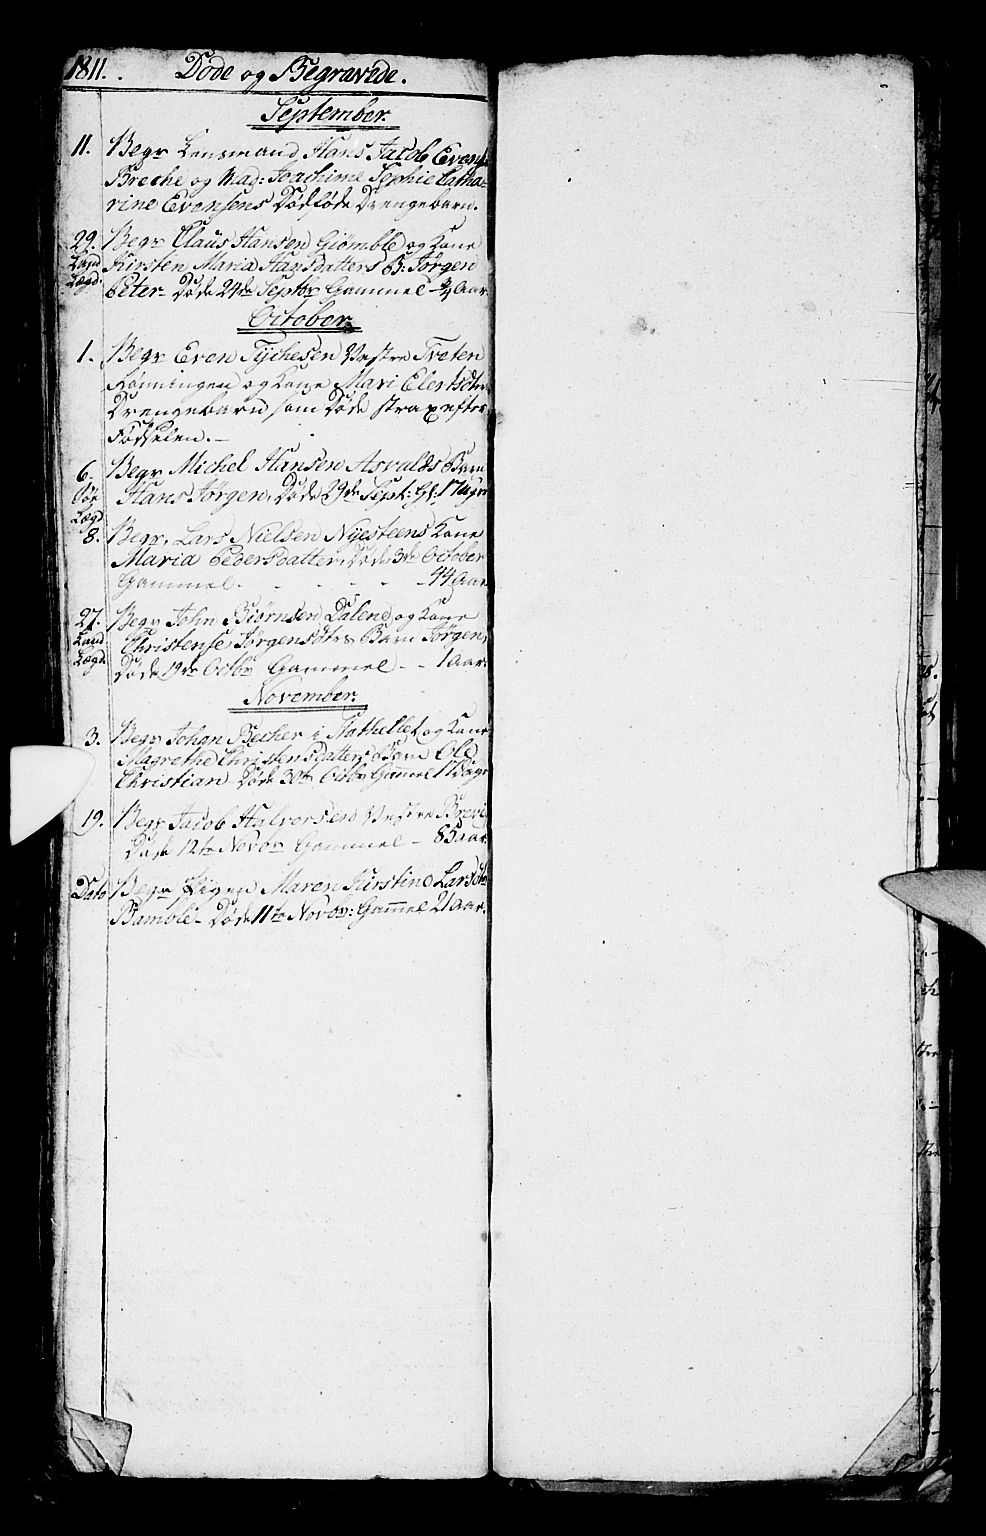 1811. Døde og Begravede.
September.
11. Begr Lensmand Hans Jacob Evens
Breche og Mad: Joachime Sophie Catha-
rine Evensens Dødføde Drengebarn.
29. Begr Claus Hansen Giømble og Kone
Land Kirsten Maria Hansdatters B: Jørgen
Lægd: Peter - Døde 24de Septbr Gammel - 3/4 Aar.
October.
1. Begr Even Tychesen Vestre Tveten
Rønningen og Kone Mari Elertsdtr
Drengebarn som Døde strax efter
Fødselen. -
6. Begr Michel Hansen Asvalds Barn
Søe Hans Jørgen, Døde 29de Sept: Gl: 17 ugr
Lægd
8. Begr. Lars Nielsen Nyesteens Kone
Maria Pedersdatter, Døde 3de October
Gammel. - - - - - 44 Aar.
27. Begr John Biørnsen Dalene og Kone
Land Christense Jørgensdtrs Barn Jørgen,
Lægd. Døde 19de Octbr Gammel - - 1 Aar.
November.
3. Begr Johan Becher i Kathellet og Kone
Magrethe Christensdatters Barn Ole
Christian Døde 30te Octbr Gammel
19. Begr Jacob Halvorsen Vestre Brevig
Døde 12te Novbr Gammel - 85 aar.
Dato Begr Pigen Maren Kirstine Larsdtr
Bamble - Døde 11te Novbr: Gammel 21 aar.